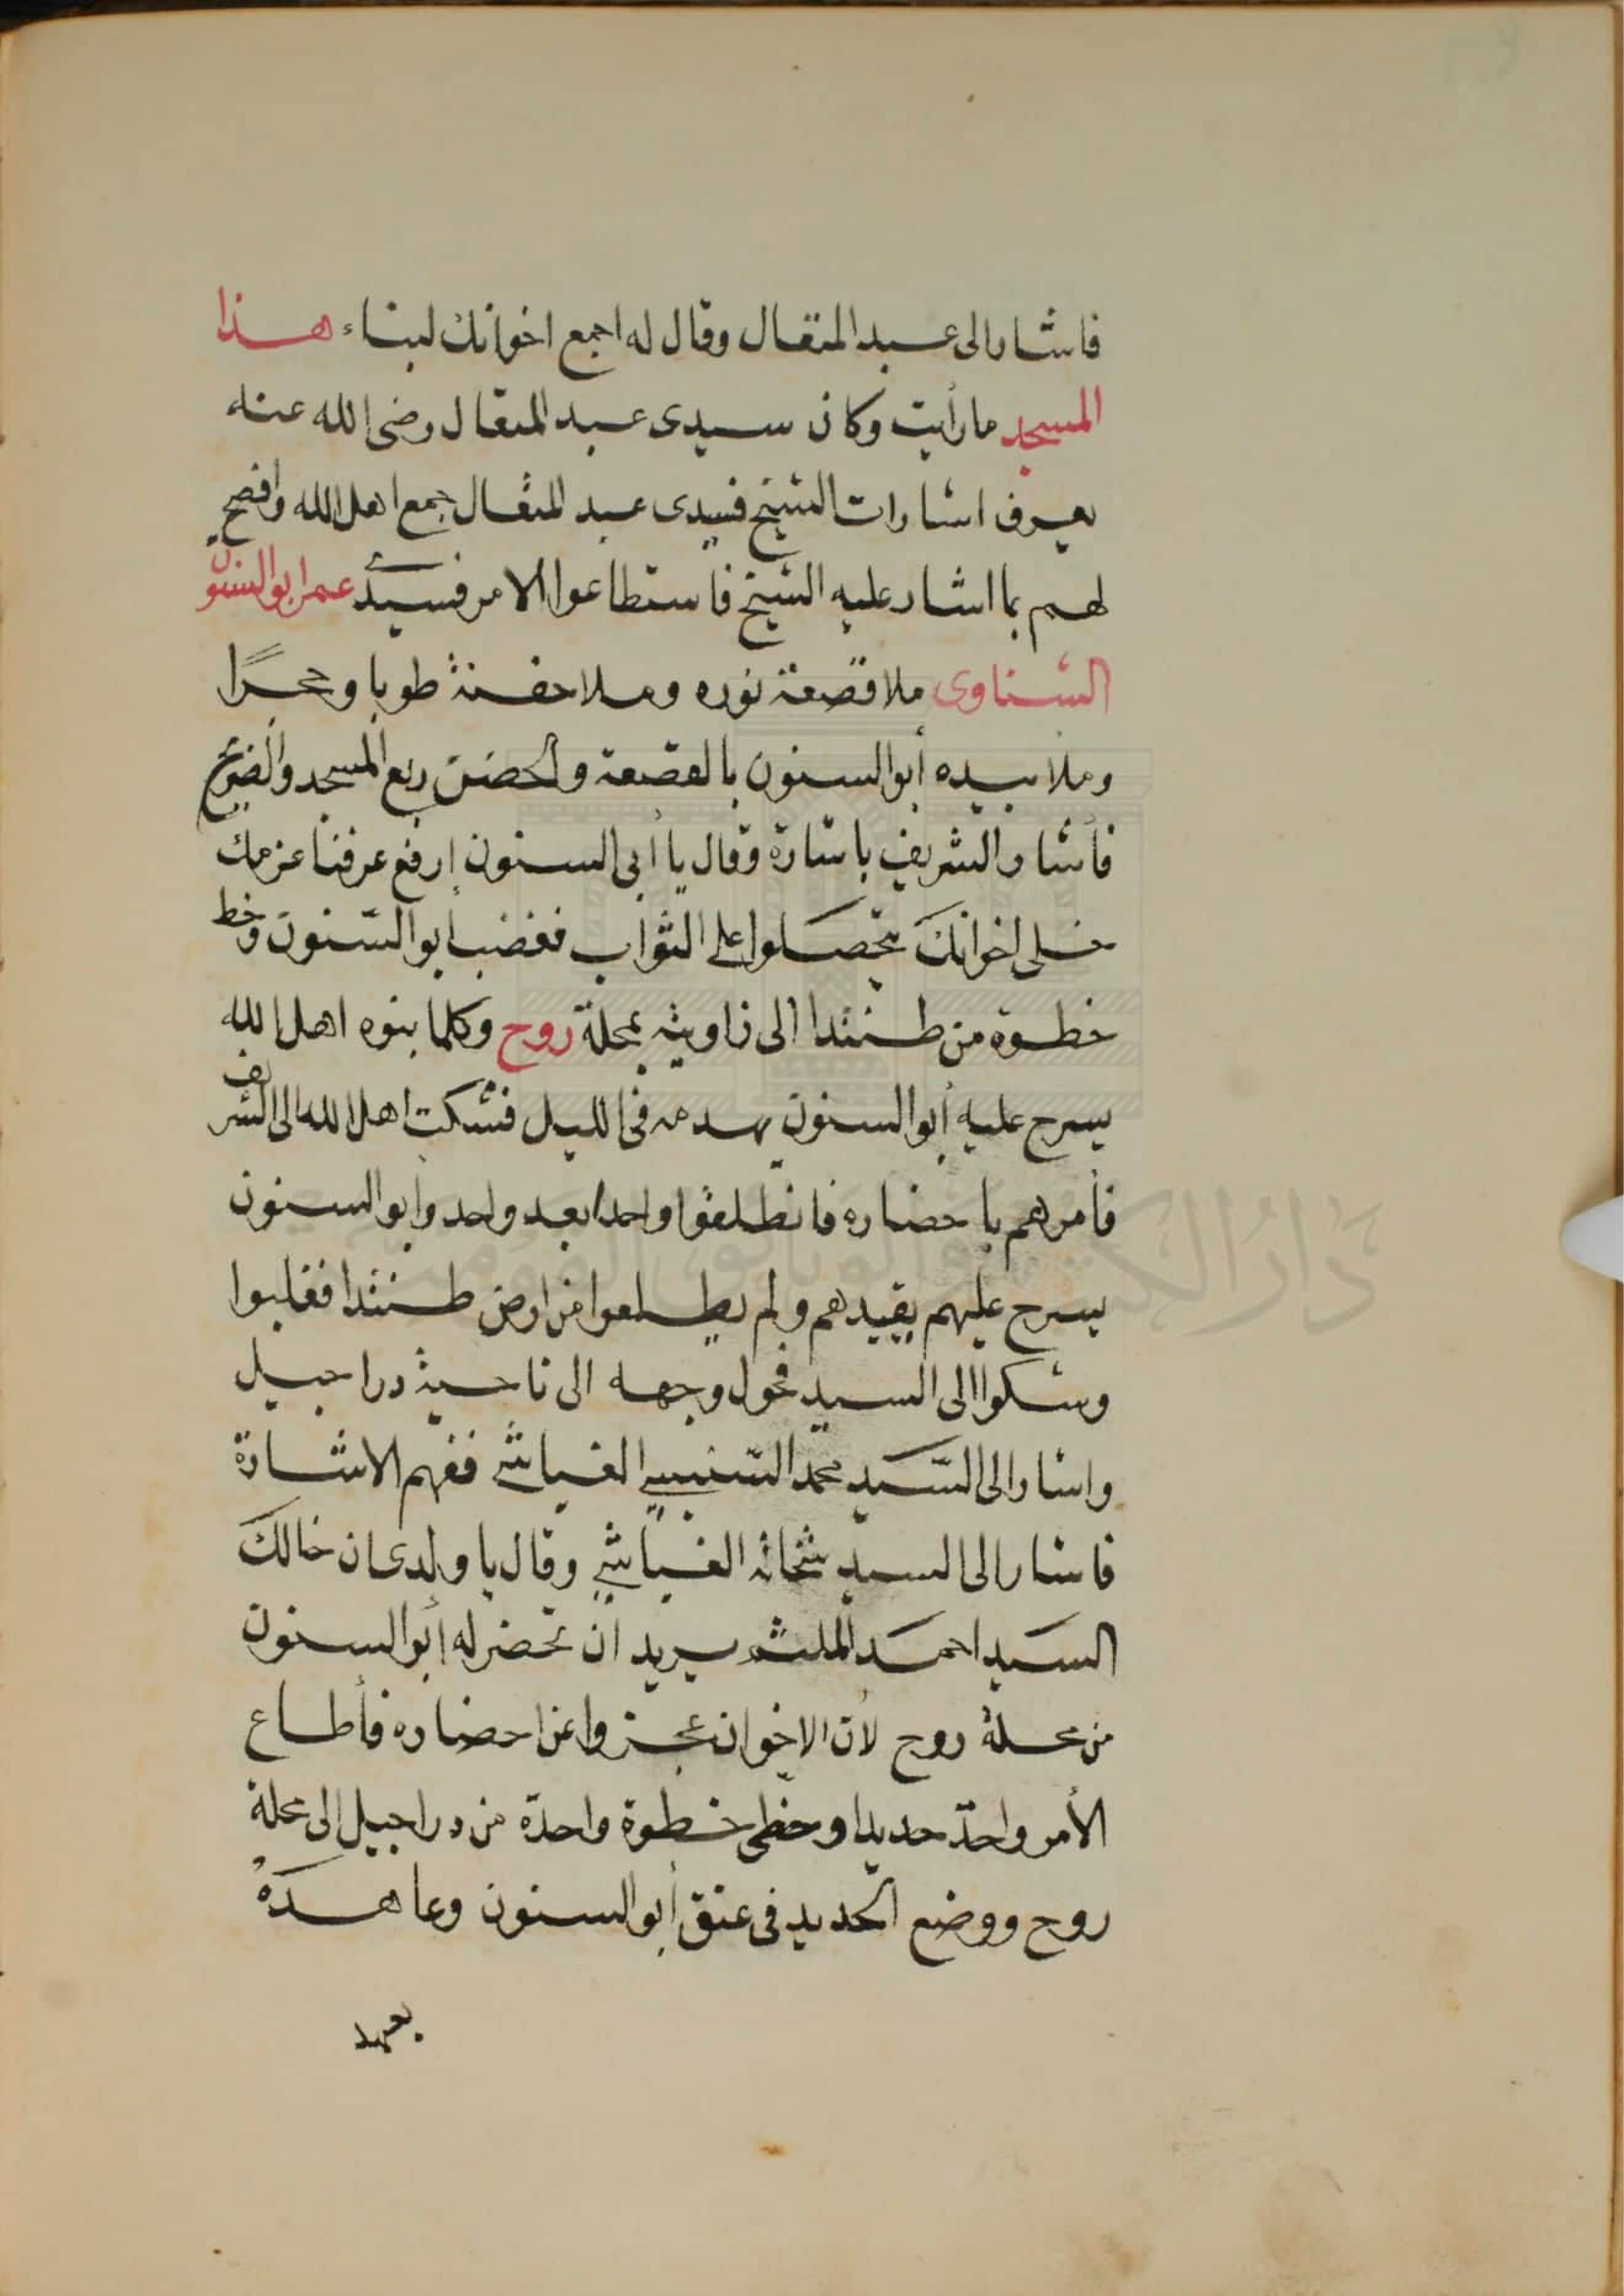 فاشار الى عبد المتعال وقال له اجمع اخوانك لبناء هذا
المسجد ما رأيت وكان سيدى عبد المتعال رضى الله عنه
يعرف اشارات الشيخ فسيدى عبد المتعال جمع اهل الله وافصح
لهم بما اشار عليه الشيخ فاستطاعوا الامر فسيد عمر ابو السنون
الشناوى ملا قصعة نوره وملا حفنة طوبا وحجرًا
وملا بيده أبو السنون بالقصعة والحضن ربع المسجد والضريح
فأشار الشريف باشارة وقال يا أبى السنون إرفع عرفنا عزمك
خلى اخوانك يتحصلوا على الثواب فغضب أبو السنون وخط
خطوة من طنتدا الى زاويته بمحلة روح وكلما بنوه اهل الله
يسرح عليه أبو السنون يهدمه فى الليل فشكت اهل الله الى الشريف
فأمرهم باحضاره فانطلقوا واحدا بعد واحد وأبو السنون
يسرح عليهم يقيدهم ولم يطلعوا من ارض طنتدا فغلبوا
وشكوا الى السيد فحول وجهه الى ناحية درا جيل
واشار الى السيد محمد الغياشى ففهم الاشارة
فاشار الى السيد شحاته الغياشى وقال يا ولدى ان خالك
السيد احمد الملثم يريد ان تحضر له أبو السنون
من محلة روح لأن الاخوان عجزوا عن احضاره فأطاع
الأمر واخذ حديدا وخطى خطوة واحدة من درا جيل الى محلة
روح ووضع الحديد فى عنق أبو السنون وعاهده
بعهد
دار الكتب والوثائق القومية